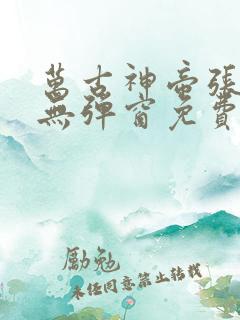 萬古神帝張
無彈窗免費
勵勉
未經同意禁止轉載